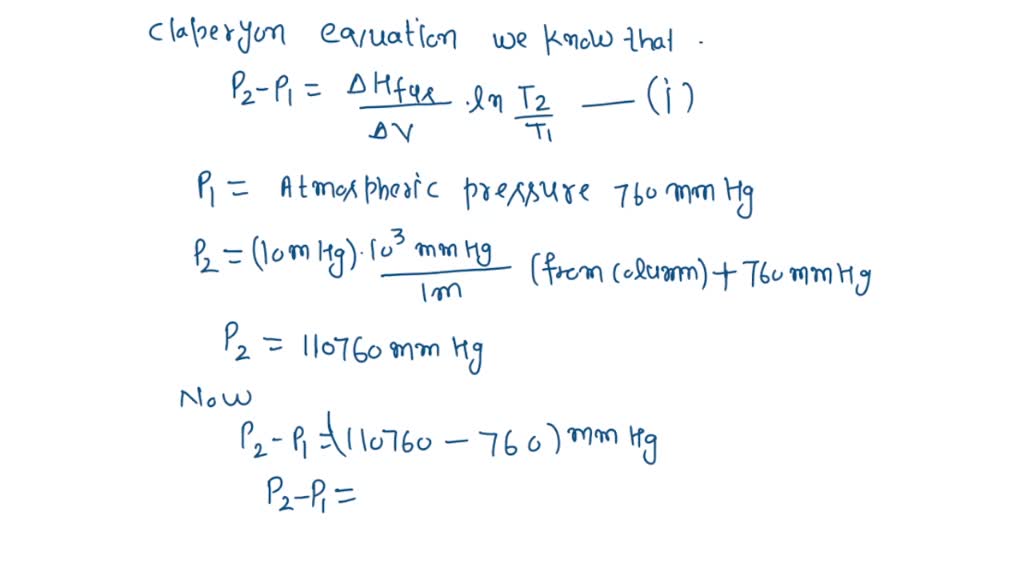 Claperyon equation we know that .
P2-P1 = ΔHfus/ΔV .ln T2/T1 — (i)
P1 = Atmospheric pressure 760 mm Hg
P2 = (10m Hg).10^3 mm Hg/1m (from column) + 760 mm Hg
P2 = 110760 mm Hg
Now
P2-P1 = (110760 - 760) mm Hg
P2-P1 =